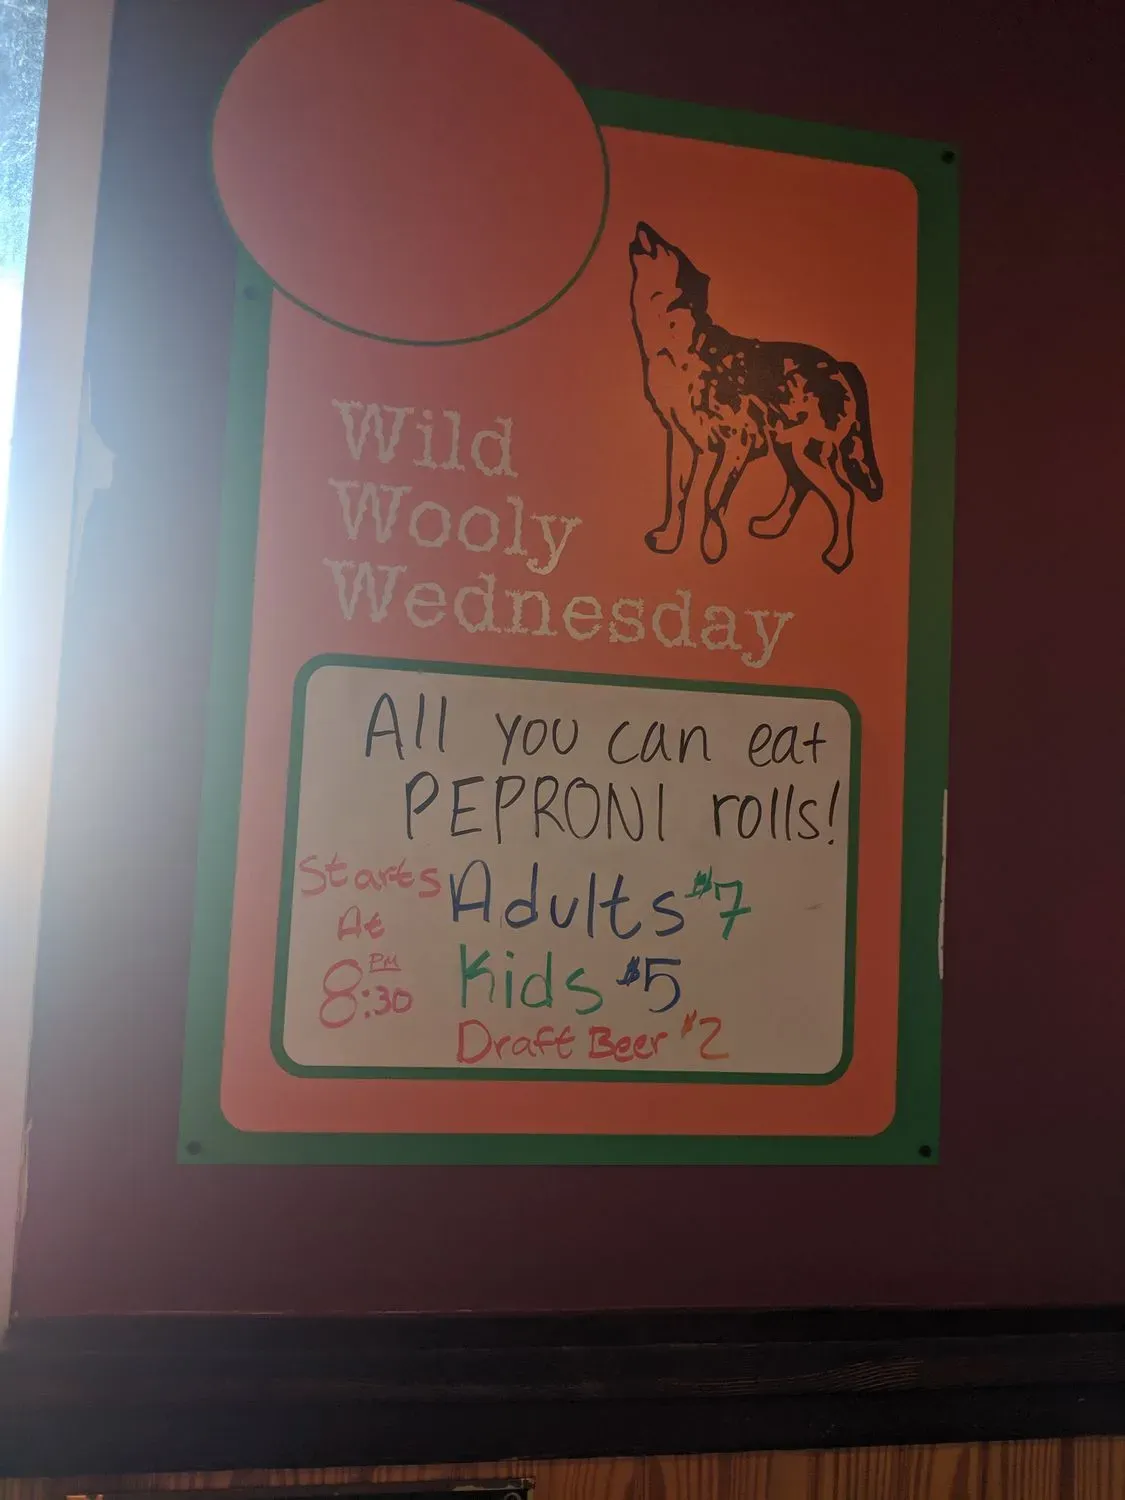 Wild
Wooly
Wednesday
All you can eat
PEPRONI rolls!
Starts
At
8:30 PM
Adults $7
Kids $5
Draft Beer $2